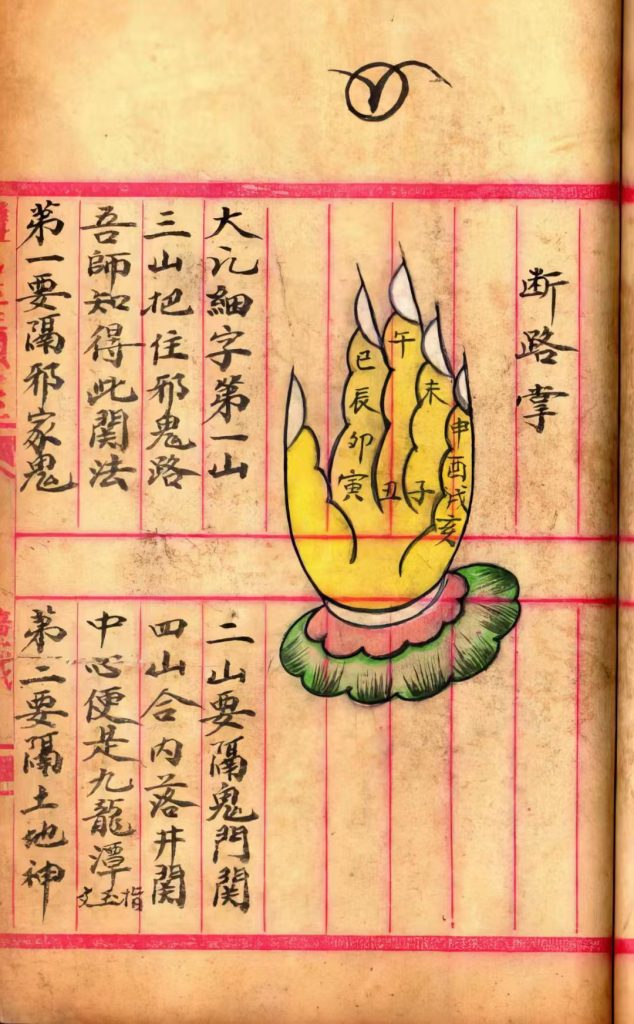 断路掌
申酉戌亥
未
子
午
丑
巳辰卯寅
大 細字第一山
二山要隔鬼門関
三山把住邪鬼路
四山合内落井関
吾師知得此関法
中心便是九龍潭
指玉文
第一要隔邪家鬼
第二要隔土地神